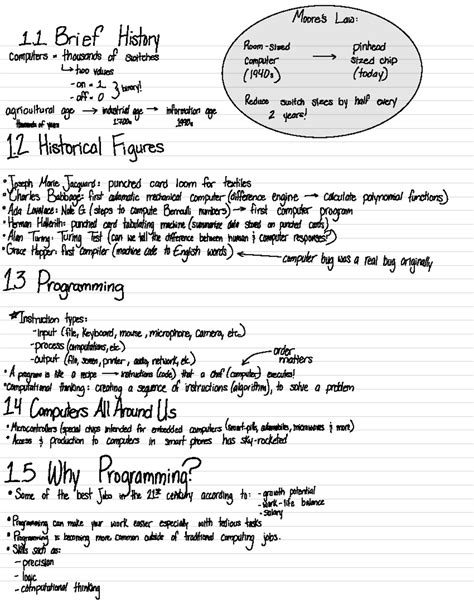 1.1 Brief History
computers = thousands of switches
↳ two values
- on = 1
- off = 0
} binary!
agricultural age → industrial age → information age
thousands of years 1700s 1970s
Moore's Law:
Room-sized computer (1940s) → pinhead sized chip (today)
Reduce switch sizes by half every 2 years!
1.2 Historical Figures
• Joseph Marie Jacquard: punched card loom for textiles
• Charles Babbage: first automatic mechanical computer (difference engine → calculate polynomial functions)
• Ada Lovelace: Note G (steps to compute Bernoulli numbers) → first computer program
• Herman Hollerith: punched card tabulating machine (summarize data stored on punched cards)
• Alan Turing: Turing Test (can we tell the difference between human & computer responses?)
• Grace Hopper: first compiler (machine code to English words) ← computer bug was a real bug originally
1.3 Programming
* Instruction types:
- input (file, keyboard, mouse, microphone, camera, etc.)
- process (computations, etc.)
- output (file, screen, printer, audio, network, etc.)
order matters
• A program is like a recipe → instructions (code) that a chef (computer) executes!
• Computational thinking: creating a sequence of instructions (algorithm), to solve a problem
1.4 Computers All Around Us
• Microcontrollers (special chips intended for embedded computers (smart-pills, automobiles, microwaves & more)
• Access & production to computers in smart phones has sky-rocketed
1.5 Why Programming?
• Some of the best jobs in the 21st century according to: - growth potential
- work-life balance
- salary
• Programming can make your work easier especially with tedious tasks
• Programming is becoming more common outside of traditional computing jobs.
• Skills such as:
- precision
- logic
- computational thinking